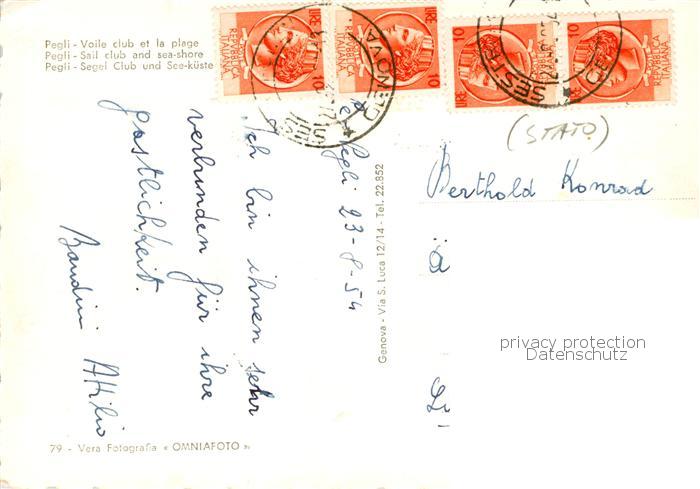 Pegli - Voile club et la plage
Pegli - Sail club and sea-shore
Pegli - Segel Club und See-küste
LIRE 10
REPVBBLICA ITALIANA
10 LIRE
REPVBBLICA ITALIANA
LIRE 10
REPVBBLICA ITALIANA
10
REPVBBLICA ITALIANA
GENOVA
SESTRI
Pegli 23-8-54
Ich bin ihnen sehr
verbunden für ihre
gastlichkeit.
Bandini Attilio
(STATO)
Berthold Konrad
à
Genova - Via S. Luca 12/14 - Tel. 22.852
privacy protection
Datenschutz
79 - Vera Fotografia « OMNIAFOTO »